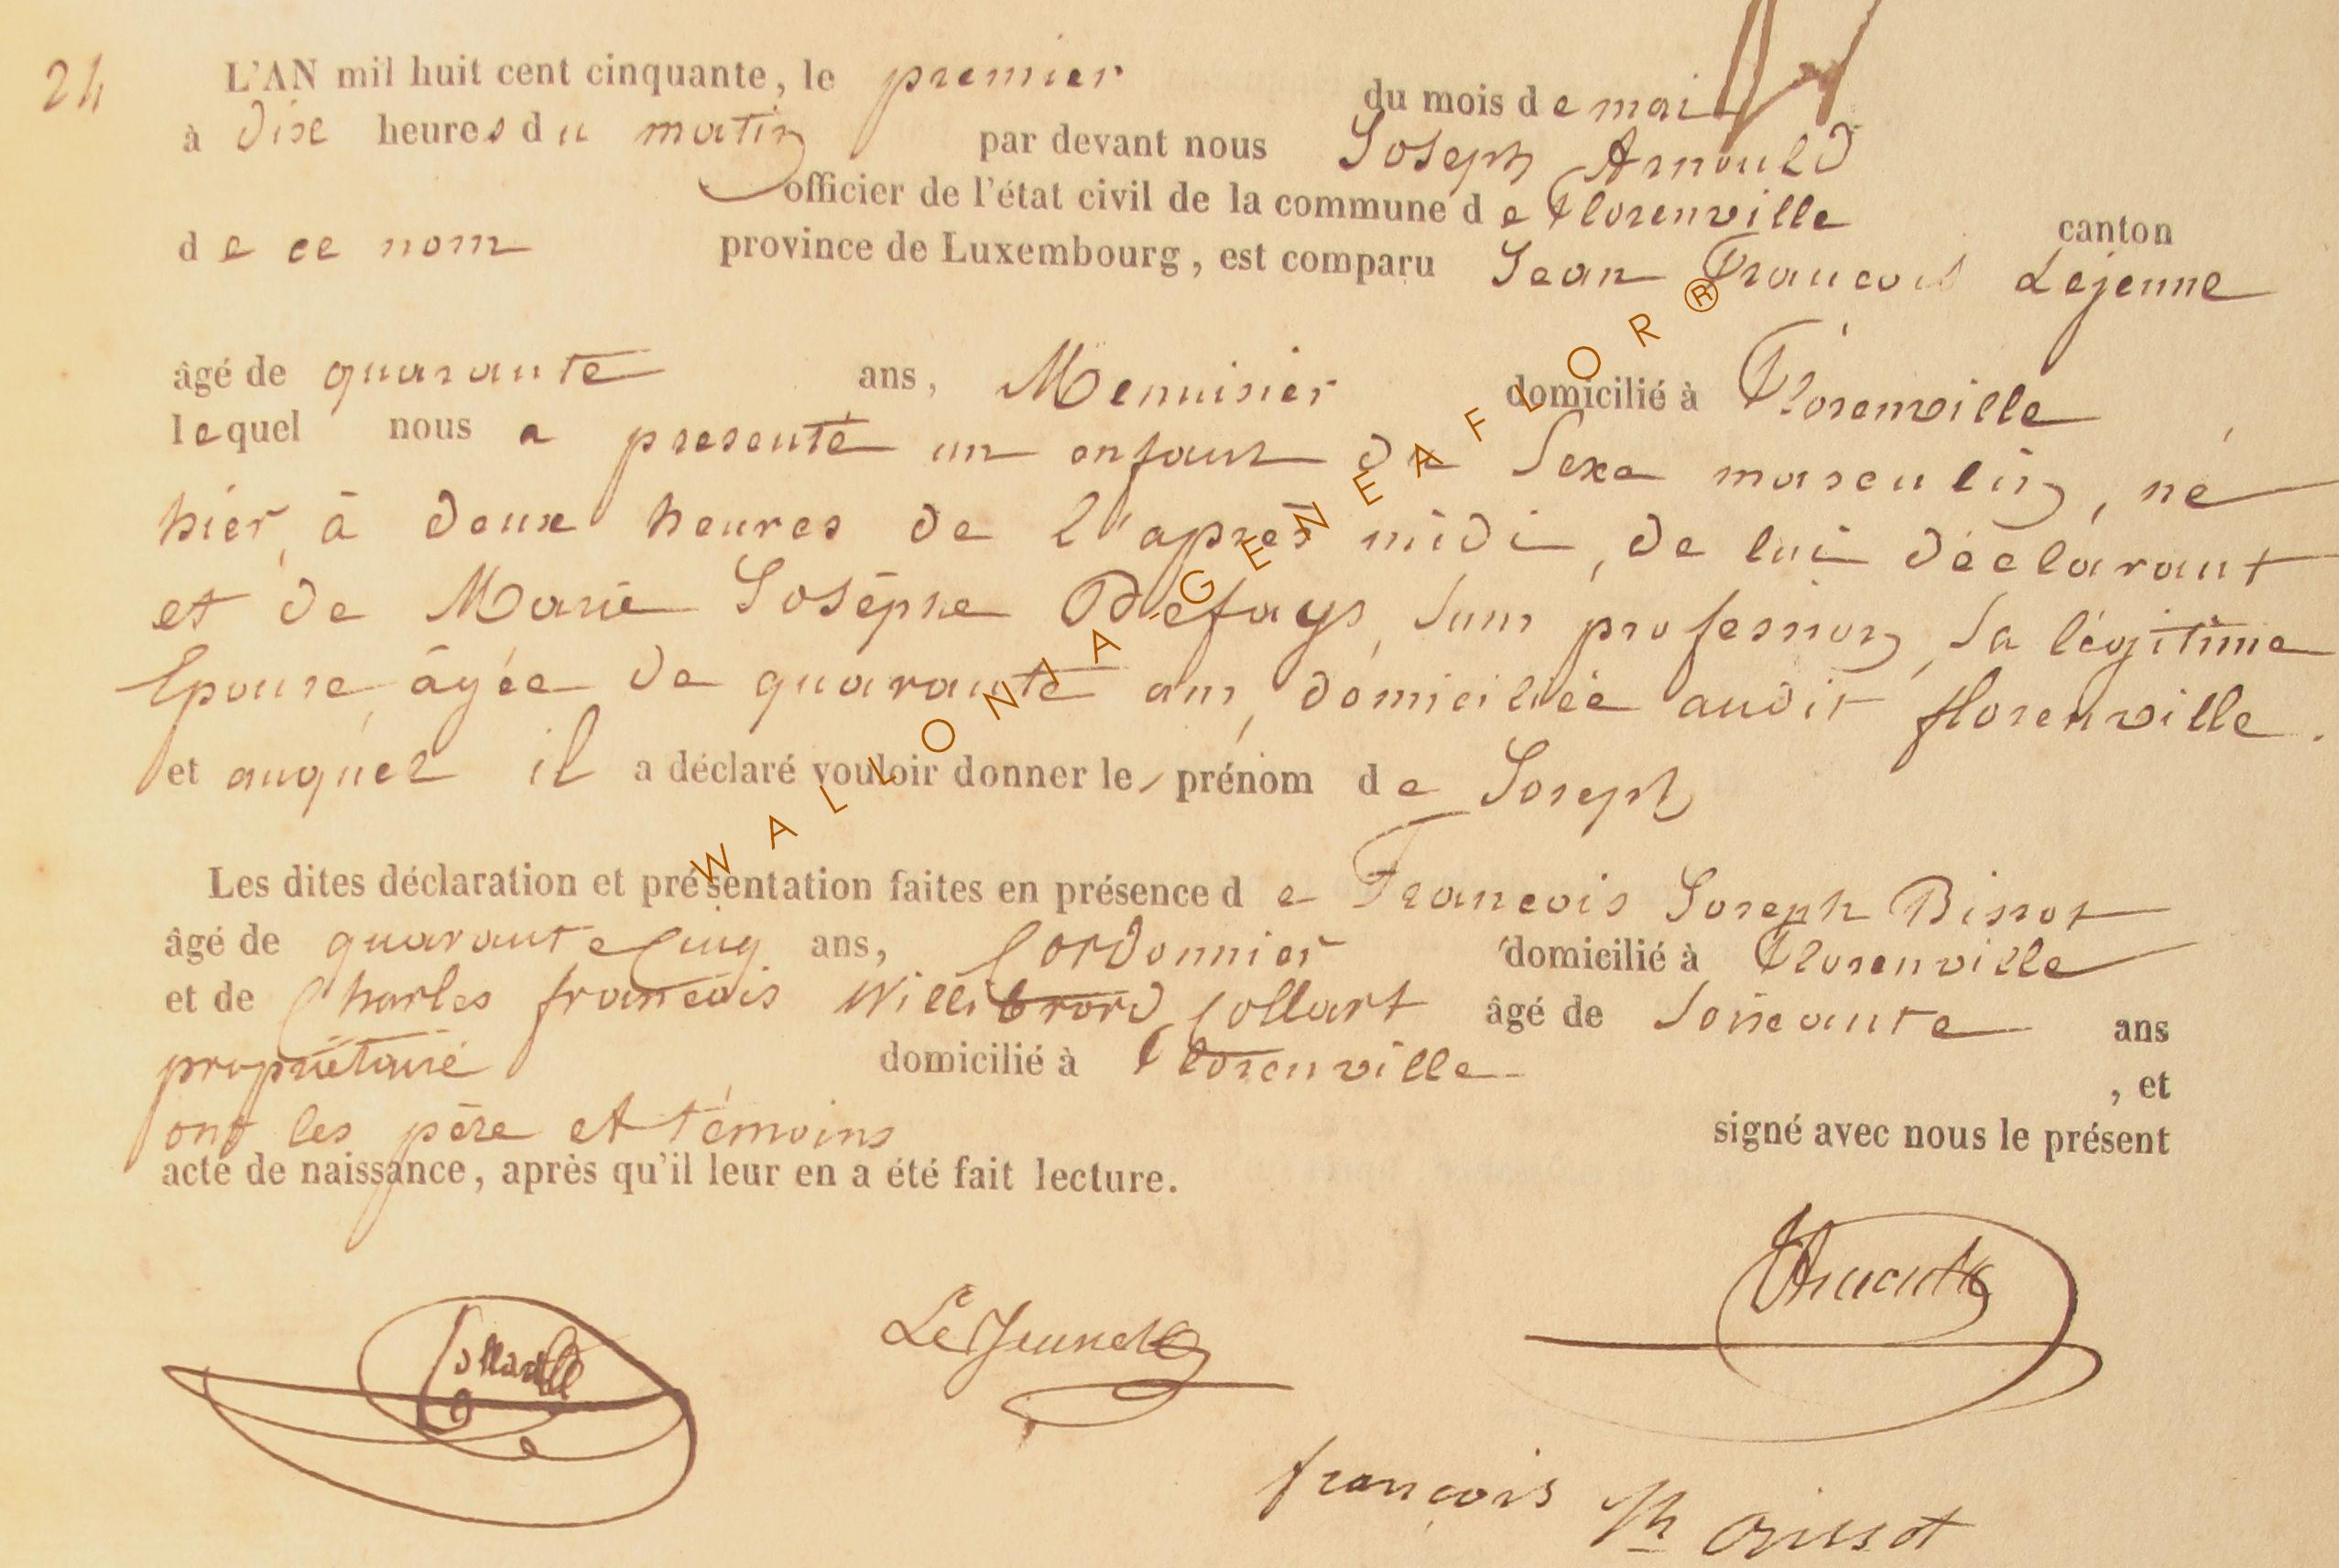 24
L'AN mil huit cent cinquante, le premier du mois de mai
à dixe heures du matin par devant nous Joseph Arnould
officier de l'état civil de la commune de Florenville canton
de ce nom province de Luxembourg, est comparu Jean François Lejeune
âgé de quarante ans, Menuisier domicilié à Florenville
lequel nous a presenté un enfant du Sexe masculin, né
hier, à deuxe heures de l'après midi, de lui déclarant
et de Marie Joséphe Defays, sans profession, sa légitime
Epouse, âgée de quarante ans, domiciliée audit florenville.
et auquel il a déclaré vouloir donner le prénom de Joseph
Les dites déclaration et présentation faites en présence de François Joseph Bissot
âgé de quarante Cinq ans, Cordonnier domicilié à Florenville
et de Charles françois Willibrord Collart âgé de Soixante ans
propriétaire domicilié à Florenville , et
ont les père et témoins signé avec nous le présent
acte de naissance, après qu'il leur en a été fait lecture.
Collart LeJeune
françois Jh Bissot
WALLONIA-GENEAFLOR®